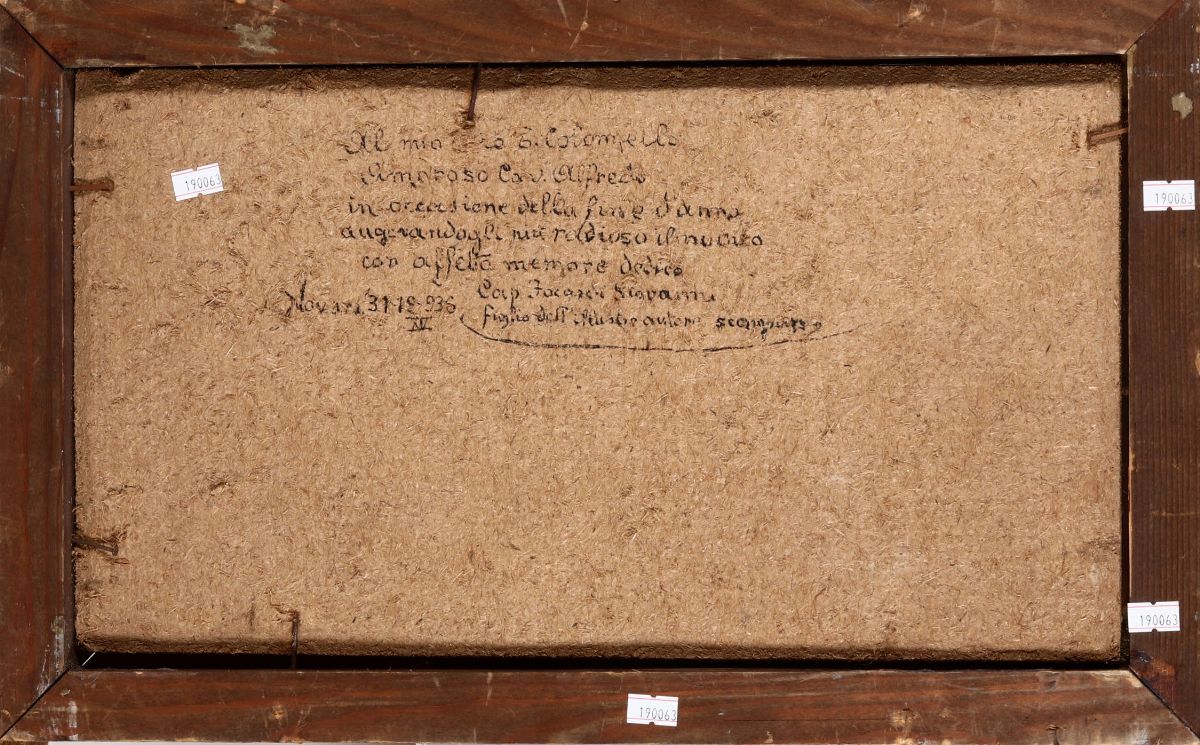 Al mio T. Colonnello
Amoroso Cav. Alfredo
in occasione della fine d'anno
augurandogli più radioso il nuovo
con affetto memore dedico
Cap. Giovanni
Novara, 31-12-936
XV
figlio dell'illustre autore scomparso
190063
190063
190063
190063